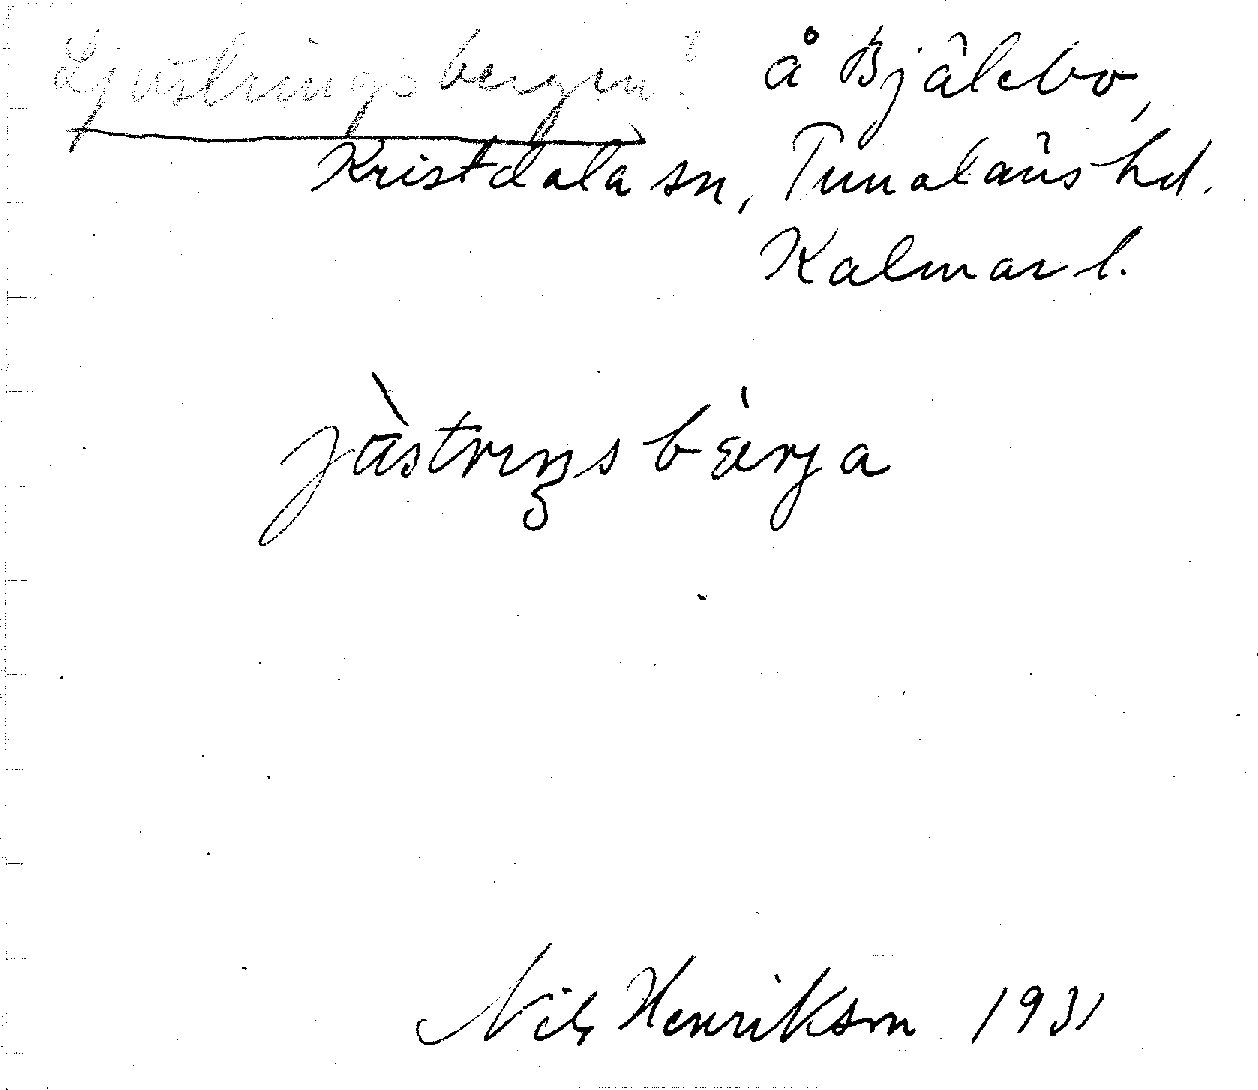 Ljustringsbergen? å Bjälebo,
Kristdala sn, Tunaläns hd.
Kalmar l.
jùstriŋsbärja
Nils Henrikson 1931